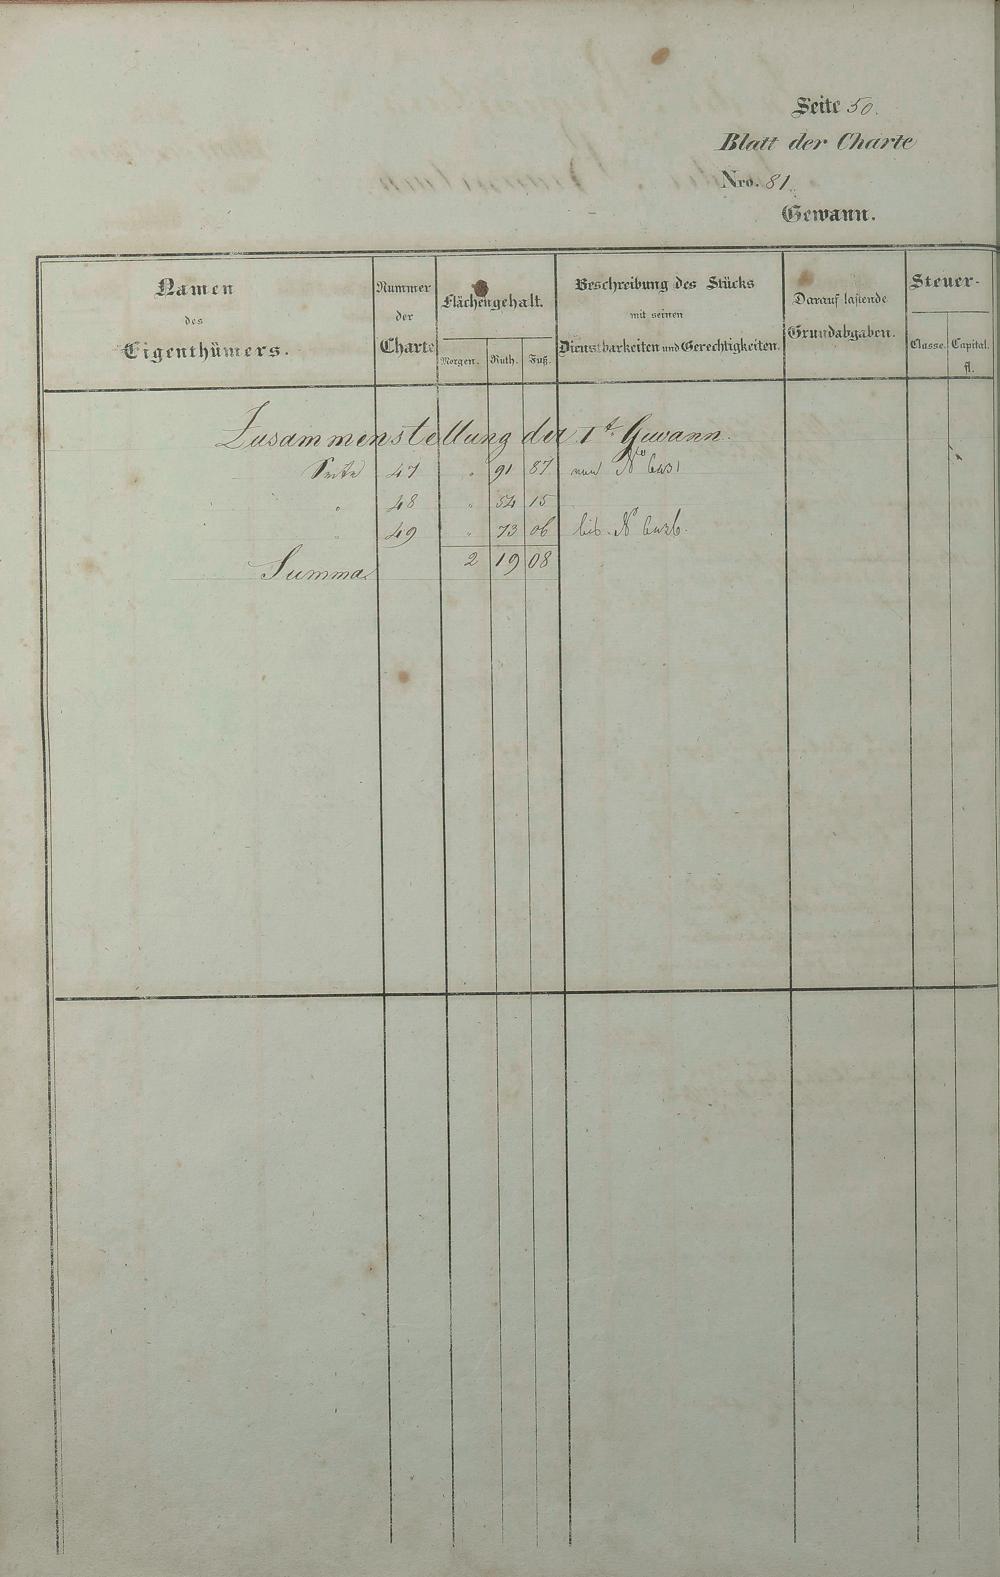 Seite 50.
Blatt der Charte
Nro. 81.
Gewann.
Namen des Eigenthümers.
Nummer der Charte
Flächengehalt.
Morgen. Ruth. Fuß.
Beschreibung des Stücks mit seinen Dienstbarkeiten und Gerechtigkeiten.
Darauf lastende Grundabgaben.
Steuer-
Classe. Capital. fl.
Zusammenstellung der 1t. Gewann.
Seite 47 " 91 87 von No
" 48 " 54 15
" 49 " 73 06 bis No
Summa 2 19 08